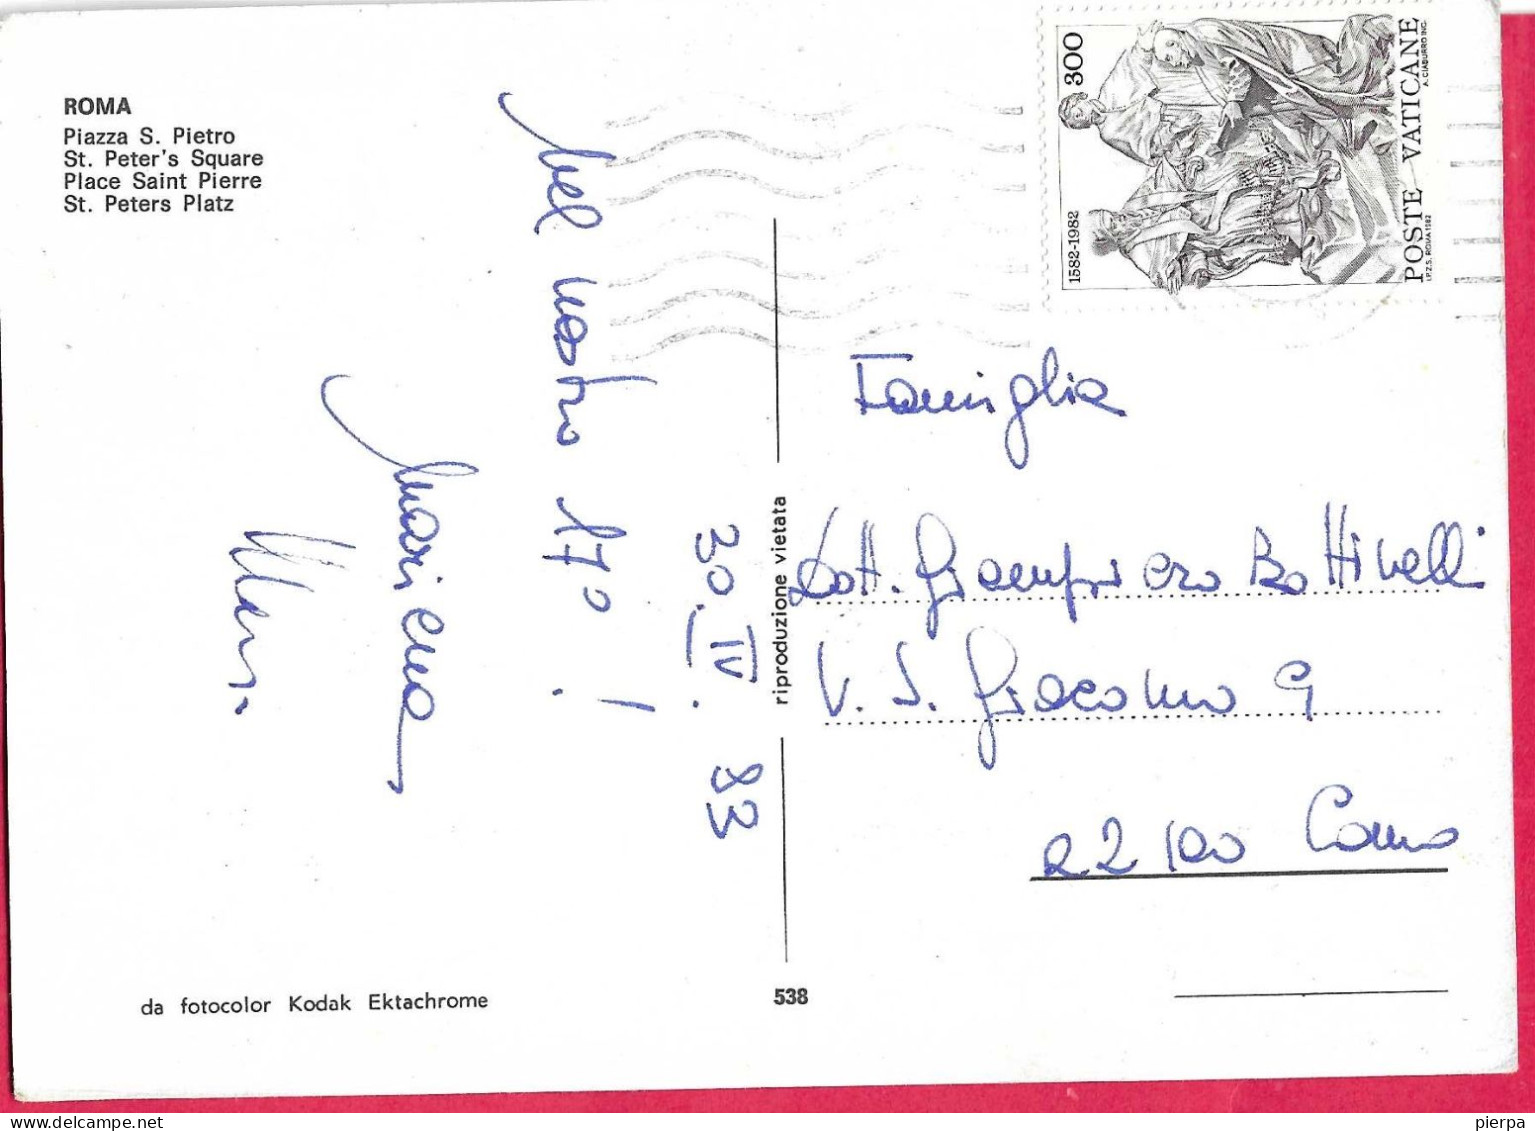 ROMA
Piazza S. Pietro
St. Peter's Square
Place Saint Pierre
St. Peters Platz
300
1582-1982
POSTE VATICANE
I.P.Z.S. ROMA 1982
A. CIABURRO INC.
30. IV. 83
Nel nostro 17° !
Marilena
riproduzione vietata
Famiglia
Dott. Giampiero Bottinelli
V. S. Giacomo 9
22100 Como
da fotocolor Kodak Ektachrome
538
pierpa
delcampe.net